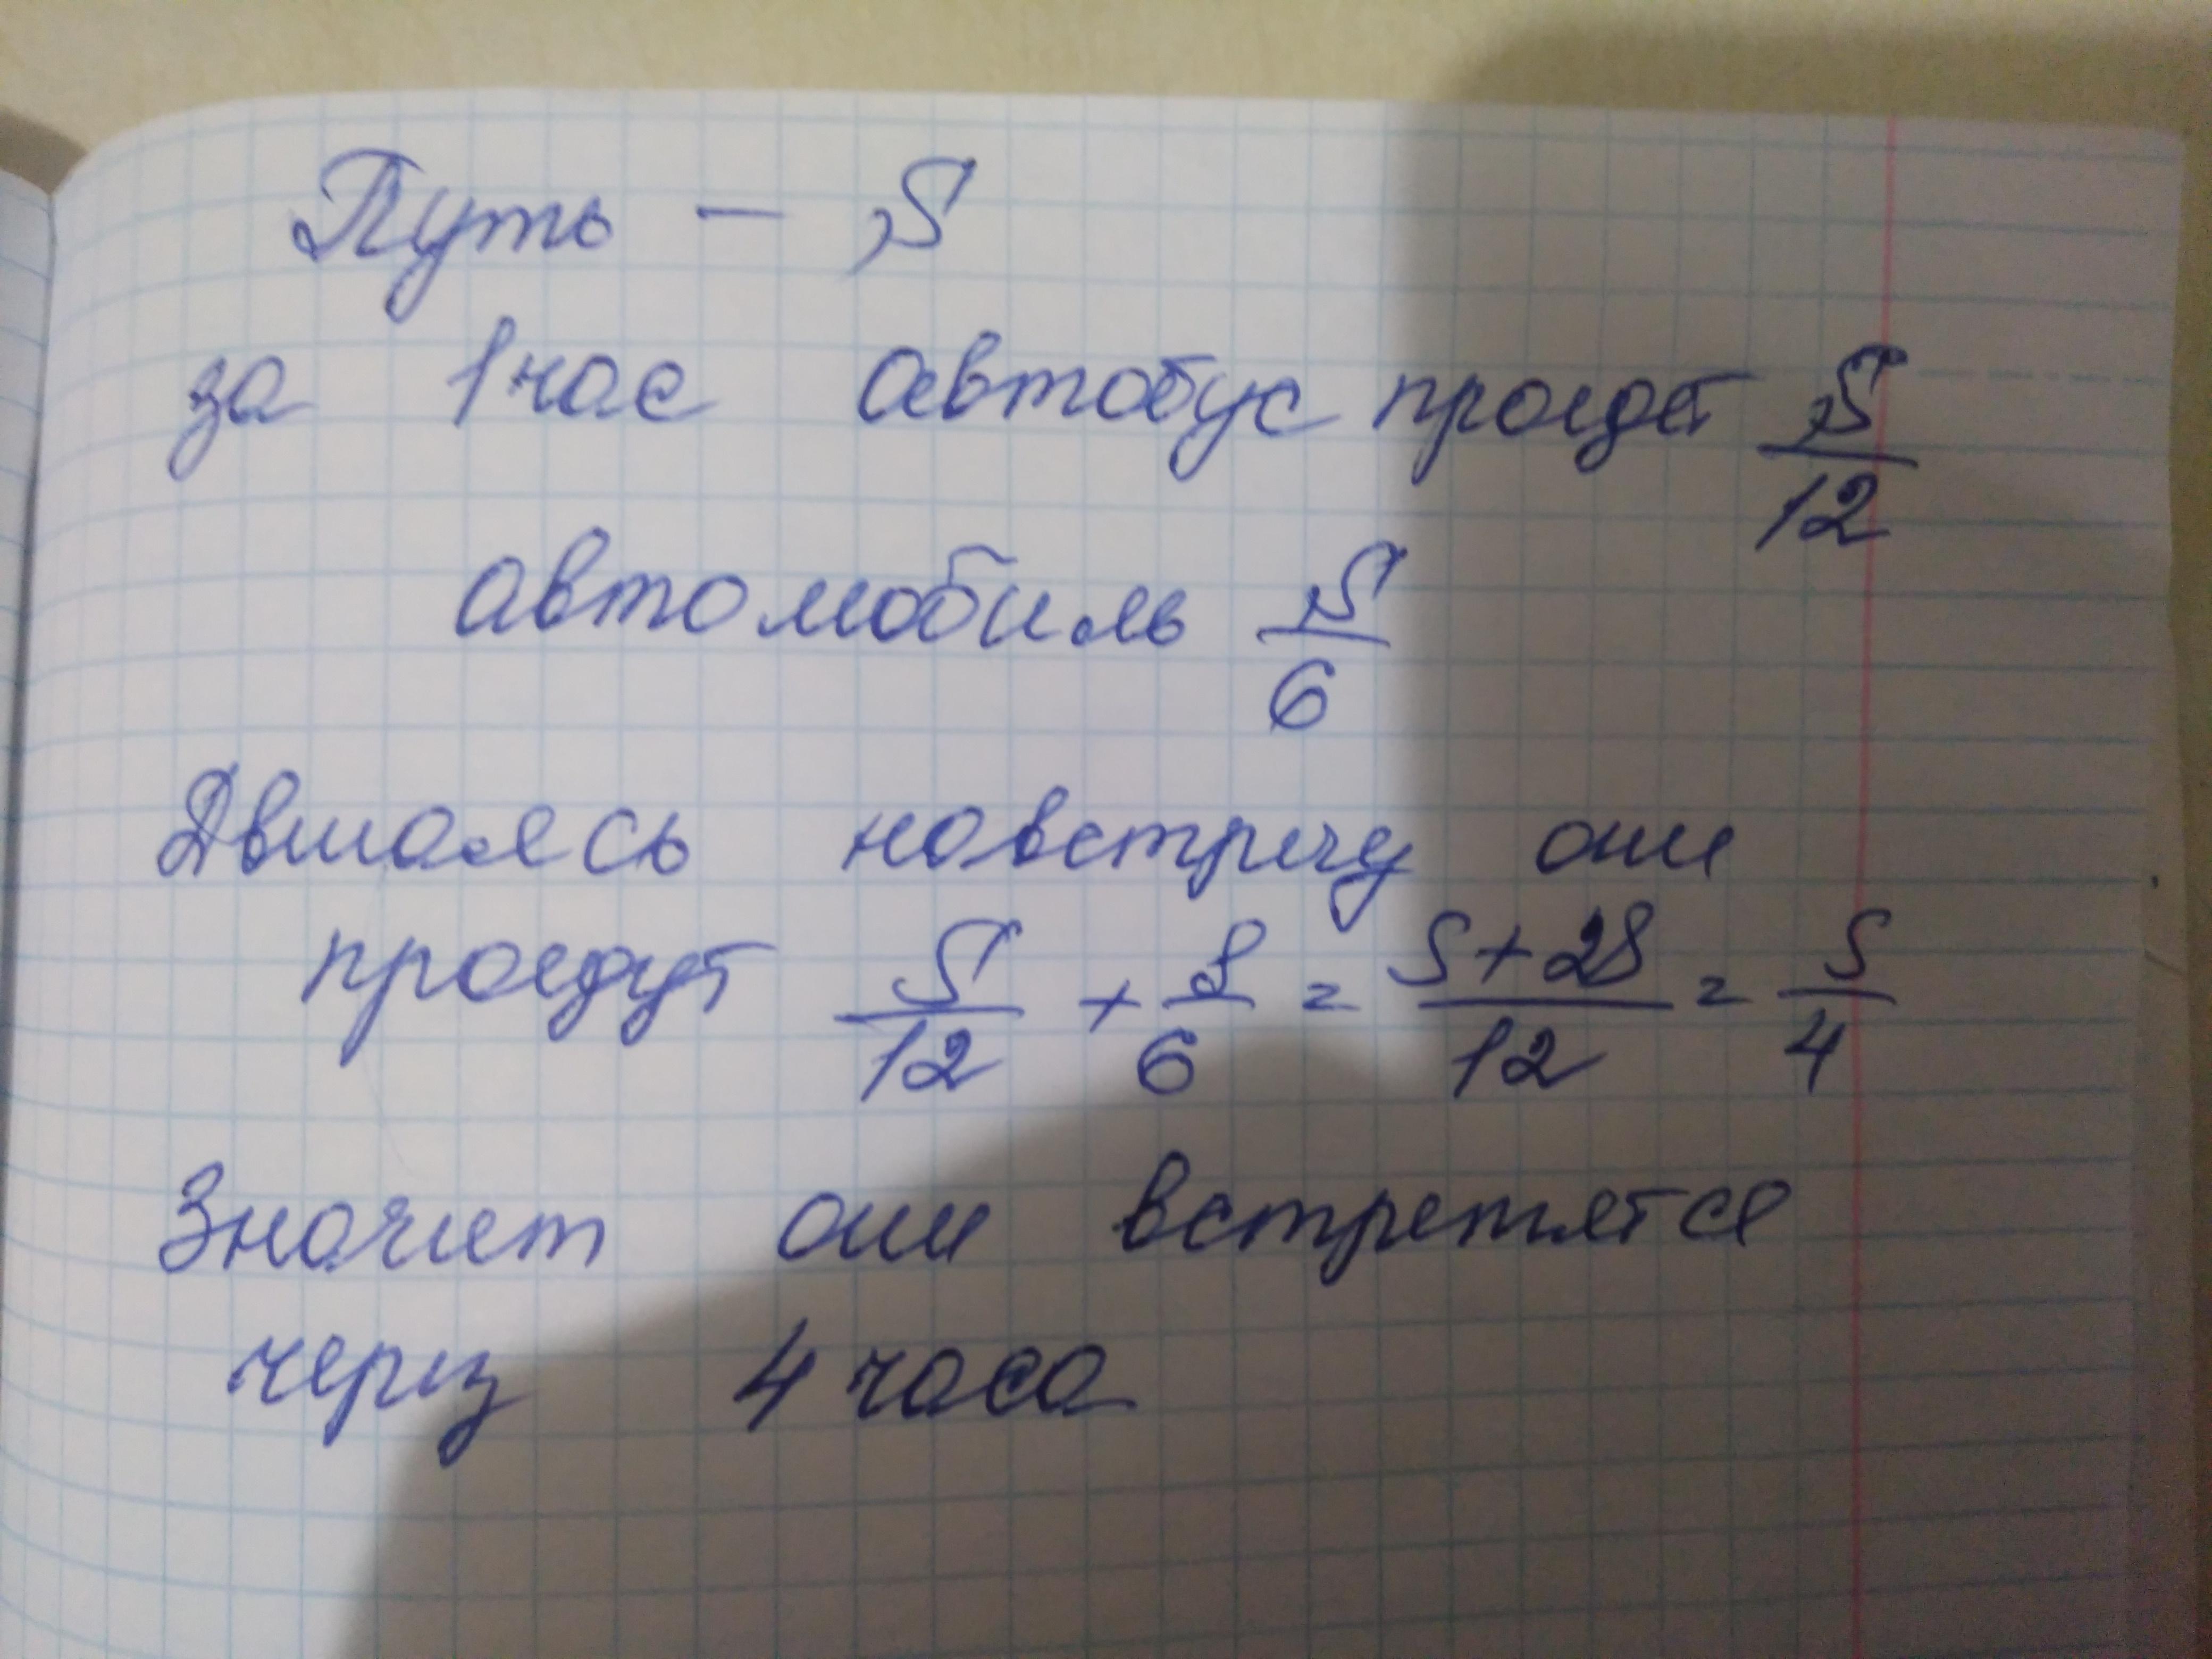 Путь – S
за 1 час автобус проедет S/12
автомобиль S/6
Двигаясь навстречу они
проедут S/12 + S/6 = S+2S/12 = S/4
Значит они встретятся
через 4 часа